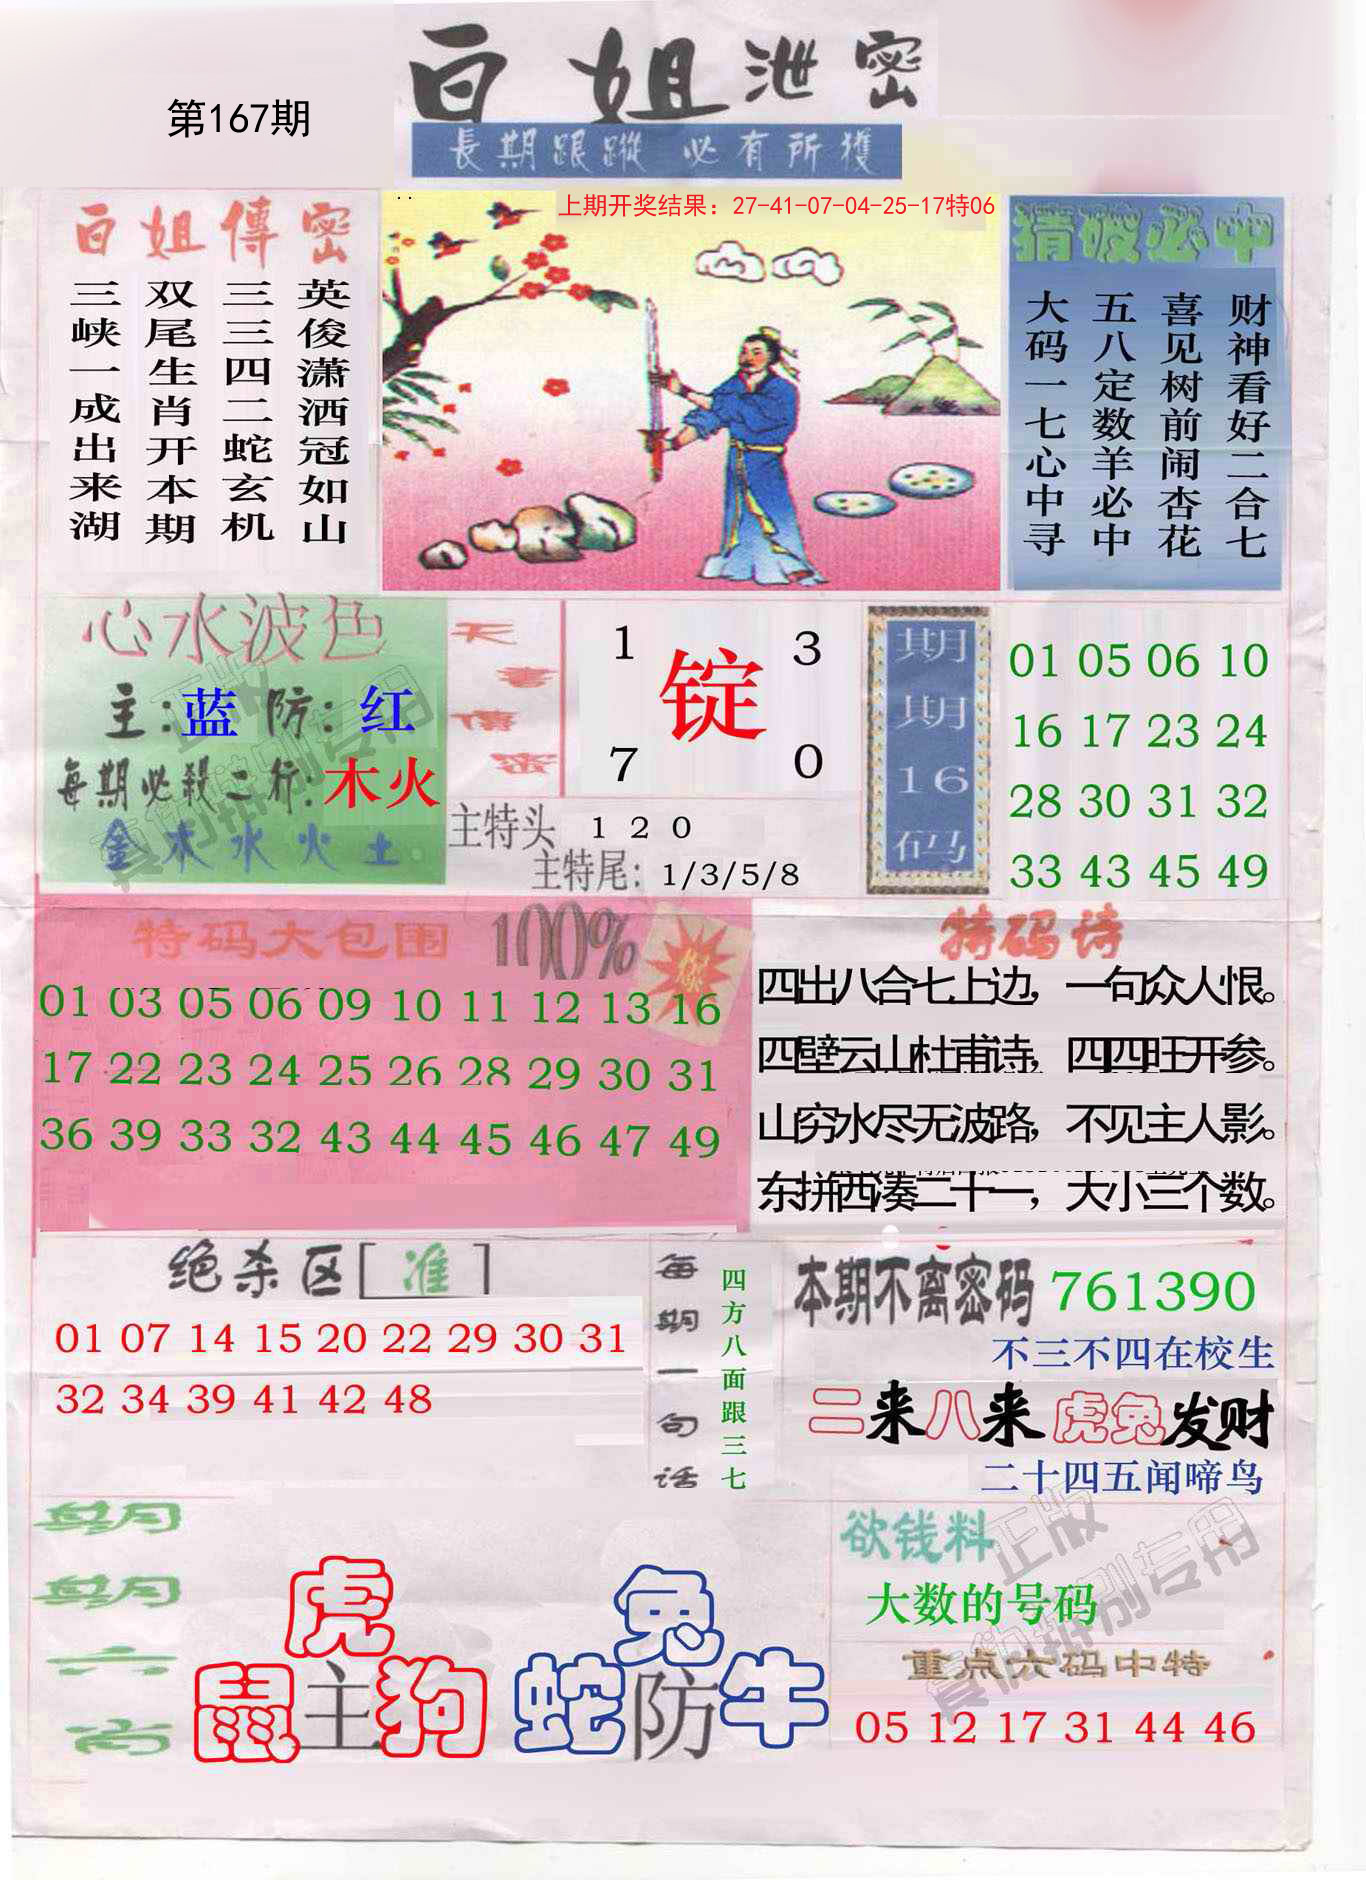 百姐泄密
第167期
長期跟蹤 必有所獲
上期开奖结果：27-41-07-04-25-17特06
百姐傳密
英俊潇洒冠如山
三三四二蛇玄机
双尾生肖开本期
三峡一成出来湖
猜破必中
财神看好二合七
喜见树前闹杏花
五八定数羊必中
大码一七心中寻
心水波色
主：蓝 防：红
每期必殺二行：木火
金木水火土
天書傳密
1 3
锭
7 0
主特头 1 2 0
主特尾：1/3/5/8
期期16码
01 05 06 10
16 17 23 24
28 30 31 32
33 43 45 49
特码大包围 100%
01 03 05 06 09 10 11 12 13 16
17 22 23 24 25 26 28 29 30 31
36 39 33 32 43 44 45 46 47 49
特码诗
四出八合七上边，一句众人恨。
四壁云山杜甫诗，四四旺开参。
山穷水尽无波路，不见主人影。
东拼西凑二十一，大小三个数。
绝杀区［准］
01 07 14 15 20 22 29 30 31
32 34 39 41 42 48
每期一句话
四方八面跟三七
本期不离密码 761390
不三不四在校生
二来八来 虎兔发财
二十四五闻啼鸟
期期六肖
虎
鼠主狗
兔
蛇防牛
欲钱料
大数的号码
重点六码中特
05 12 17 31 44 46